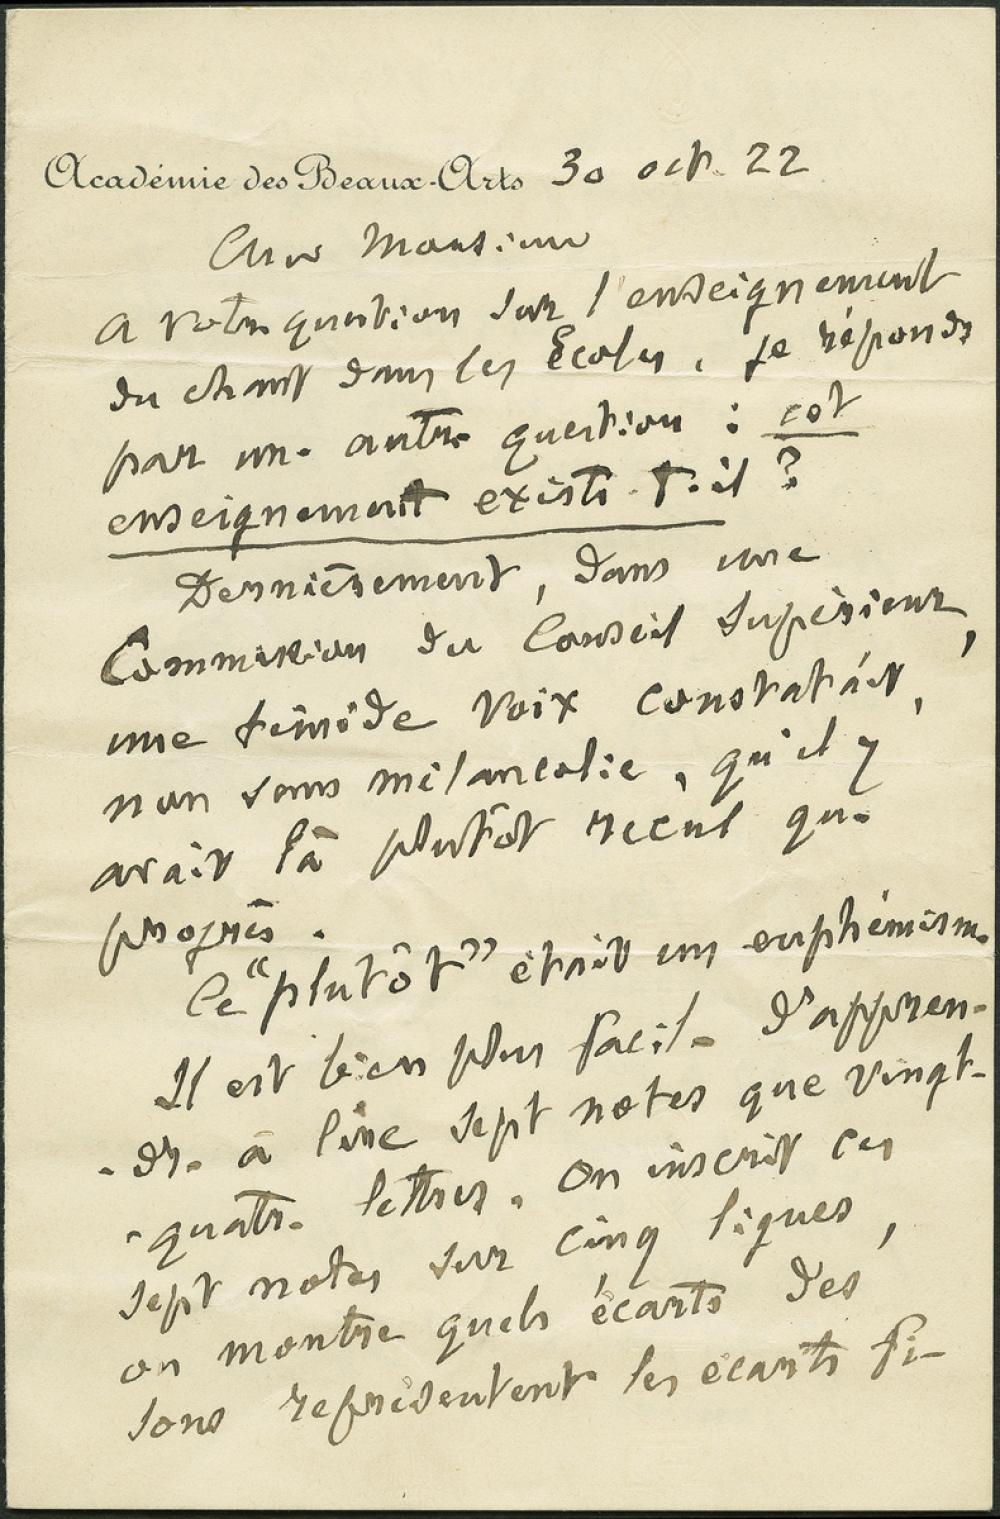 Académie des Beaux-Arts 30 oct. 22
Cher Monsieur
A votre question sur l'enseignement
du chant dans les Écoles, je réponds
par une autre question : cet
enseignement existe-t-il ?
Dernièrement, dans une
Commission du Conseil Supérieur,
une timide voix constatait,
non sans mélancolie, qu'il y
avait là plutôt recul que
progrès.
Ce "plutôt" était un euphémisme.
Il est bien plus facile d'appren-
-dre à lire sept notes que vingt-
-quatre lettres. On inscrit ces
sept notes sur cinq lignes,
on montre quels écarts des
sons représentent les écarts fi-